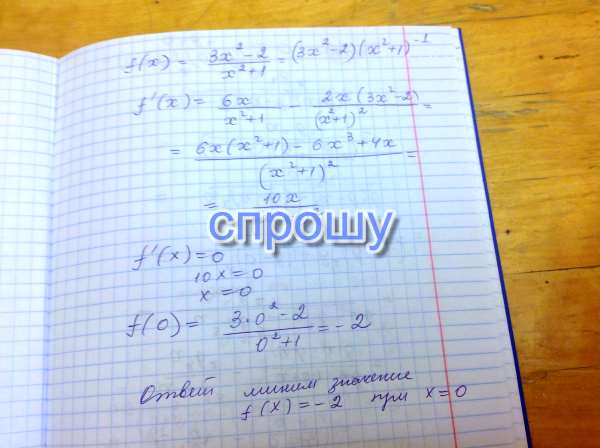 f(x) = \frac{3x²-2}{x²+1} = (3x²-2)(x²+1)⁻¹
f'(x) = \frac{6x}{x²+1} - \frac{2x(3x²-2)}{(x²+1)²} =
= \frac{6x(x²+1) - 6x³+4x}{(x²+1)²} =
= 10x
спрошу
f'(x) = 0
10x = 0
x = 0
f(0) = \frac{3·0²-2}{0²+1} = -2
Ответ миним значение
f(x) = -2 при x = 0